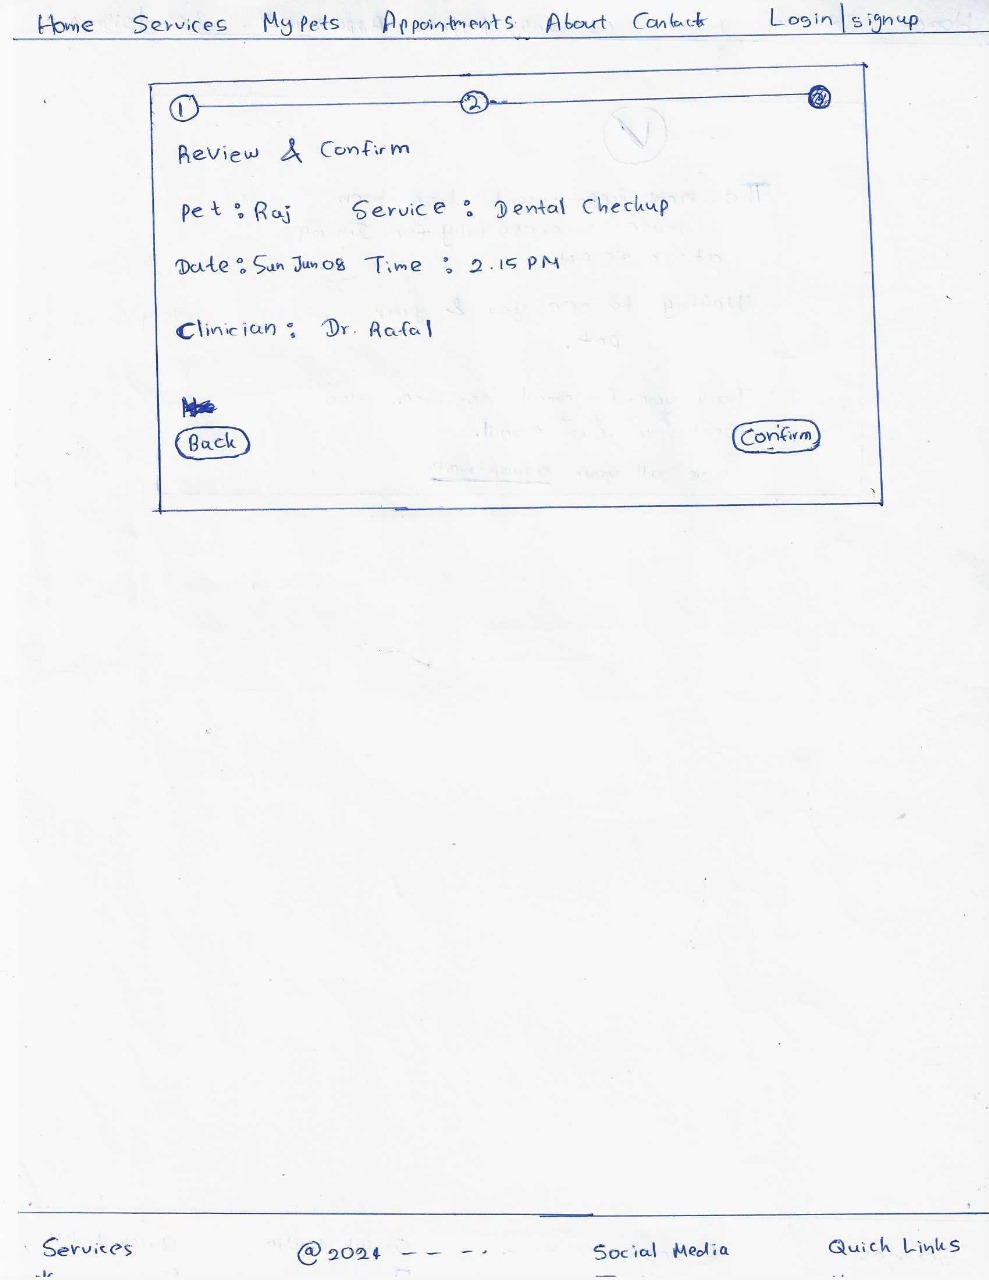 Home Services My Pets Appointments About Contact Login | signup
1 2 3
Review & Confirm
Pet : Raj Service : Dental Checkup
Date : Sun Jun 08 Time : 2.15 PM
Clinician : Dr. Rafal
Back Confirm
Services @2024 ---- Social Media Quick Links